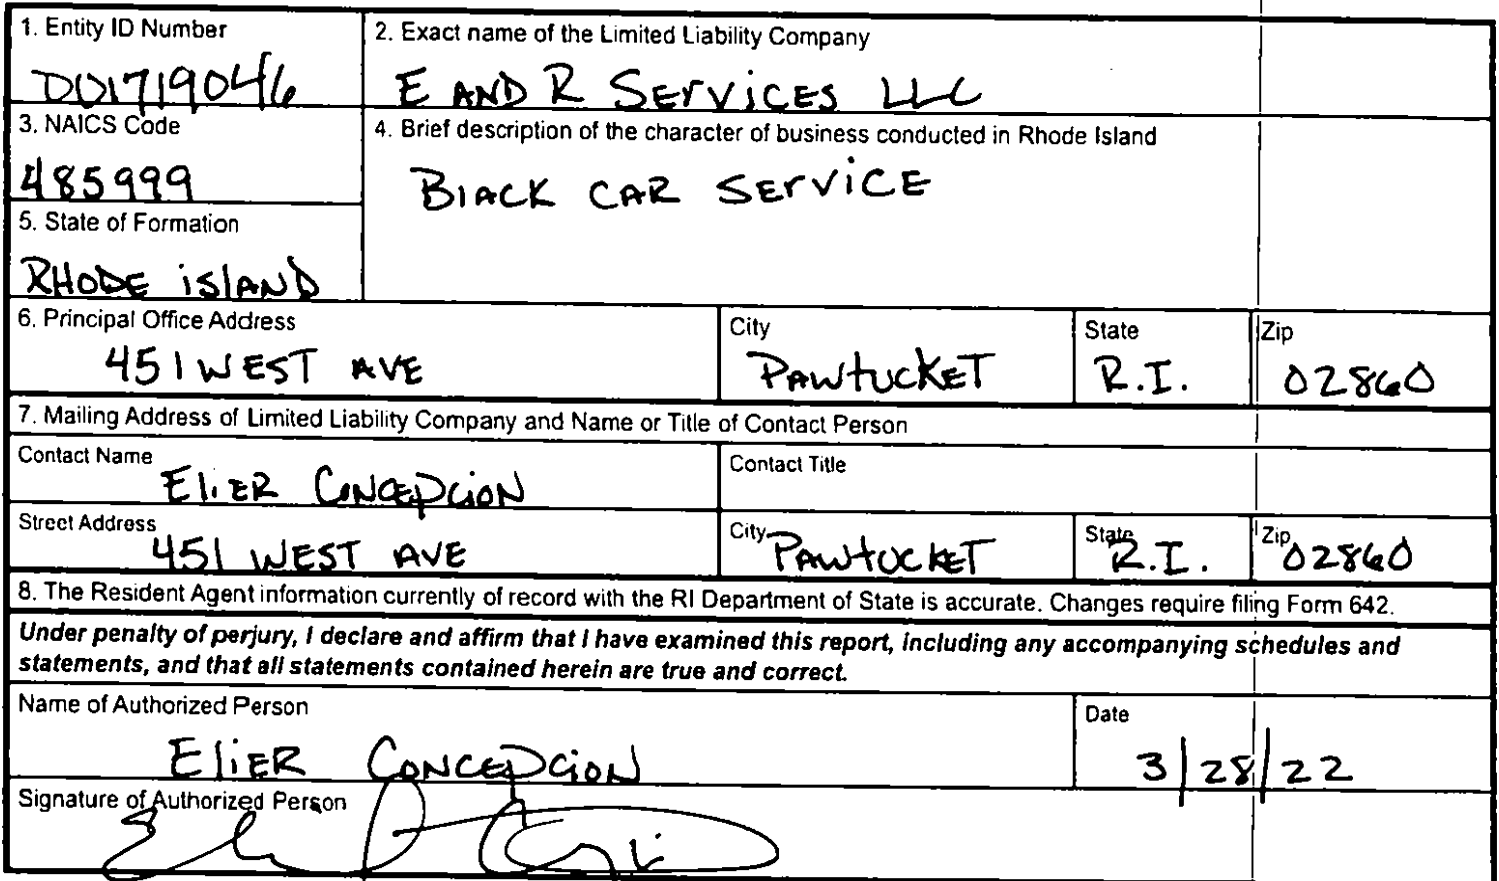 1. Entity ID Number
2. Exact name of the Limited Liability Company
001719046
E AND R SERVICES LLC
3. NAICS Code
4. Brief description of the character of business conducted in Rhode Island
485999
BLACK CAR SERVICE
5. State of Formation
RHODE ISLAND
6. Principal Office Address
City
State
Zip
451 WEST AVE
PAWTUCKET
R.I.
02860
7. Mailing Address of Limited Liability Company and Name or Title of Contact Person
Contact Name
Contact Title
ELIER CONCEPCION
Street Address
City
State
Zip
451 WEST AVE
PAWTUCKET
R.I.
02860
8. The Resident Agent information currently of record with the RI Department of State is accurate. Changes require filing Form 642.
Under penalty of perjury, I declare and affirm that I have examined this report, including any accompanying schedules and
statements, and that all statements contained herein are true and correct.
Name of Authorized Person
Date
ELIER CONCEPCION
3/28/22
Signature of Authorized Person